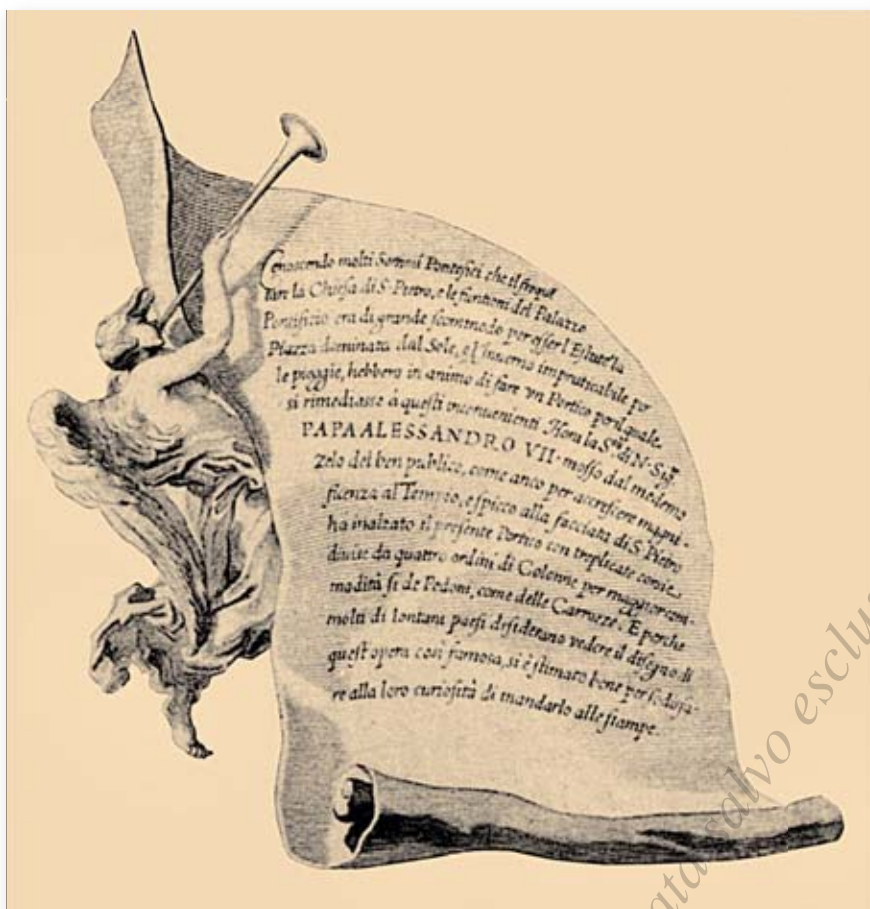 Conoscendo molti Sommi Pontefici che il frequẽ
tare la Chiesa di S. Pietro, e le funtioni del Palazzo
Pontificio era di grande scommodo per esser l'Estate la
Piazza dominata dal Sole, e l'Inuerno impraticabile per
le pioggie, hebbero in animo di fare vn Portico per il quale
si rimediasse à questi inconuenienti Hora la S.tà di N. Sig.re
PAPA ALESSANDRO VII. mosso dal medemo
zelo del ben publico, come anco per accrescere magni-
ficenza al Tempio, e spicco alla facciata di S. Pietro
ha inalzato il presente Portico con triplicate corsie
diuise da quattro ordini di Colonne per maggior com-
madità si de Pedoni, come delle Carrozze. E perche
molti di lontani paesi desiderano vedere il disegno di
quest'opera così famosa, si è stimato bene per sodisfa-
re alla loro curiosità di mandarlo alle stampe.
salvo esclus